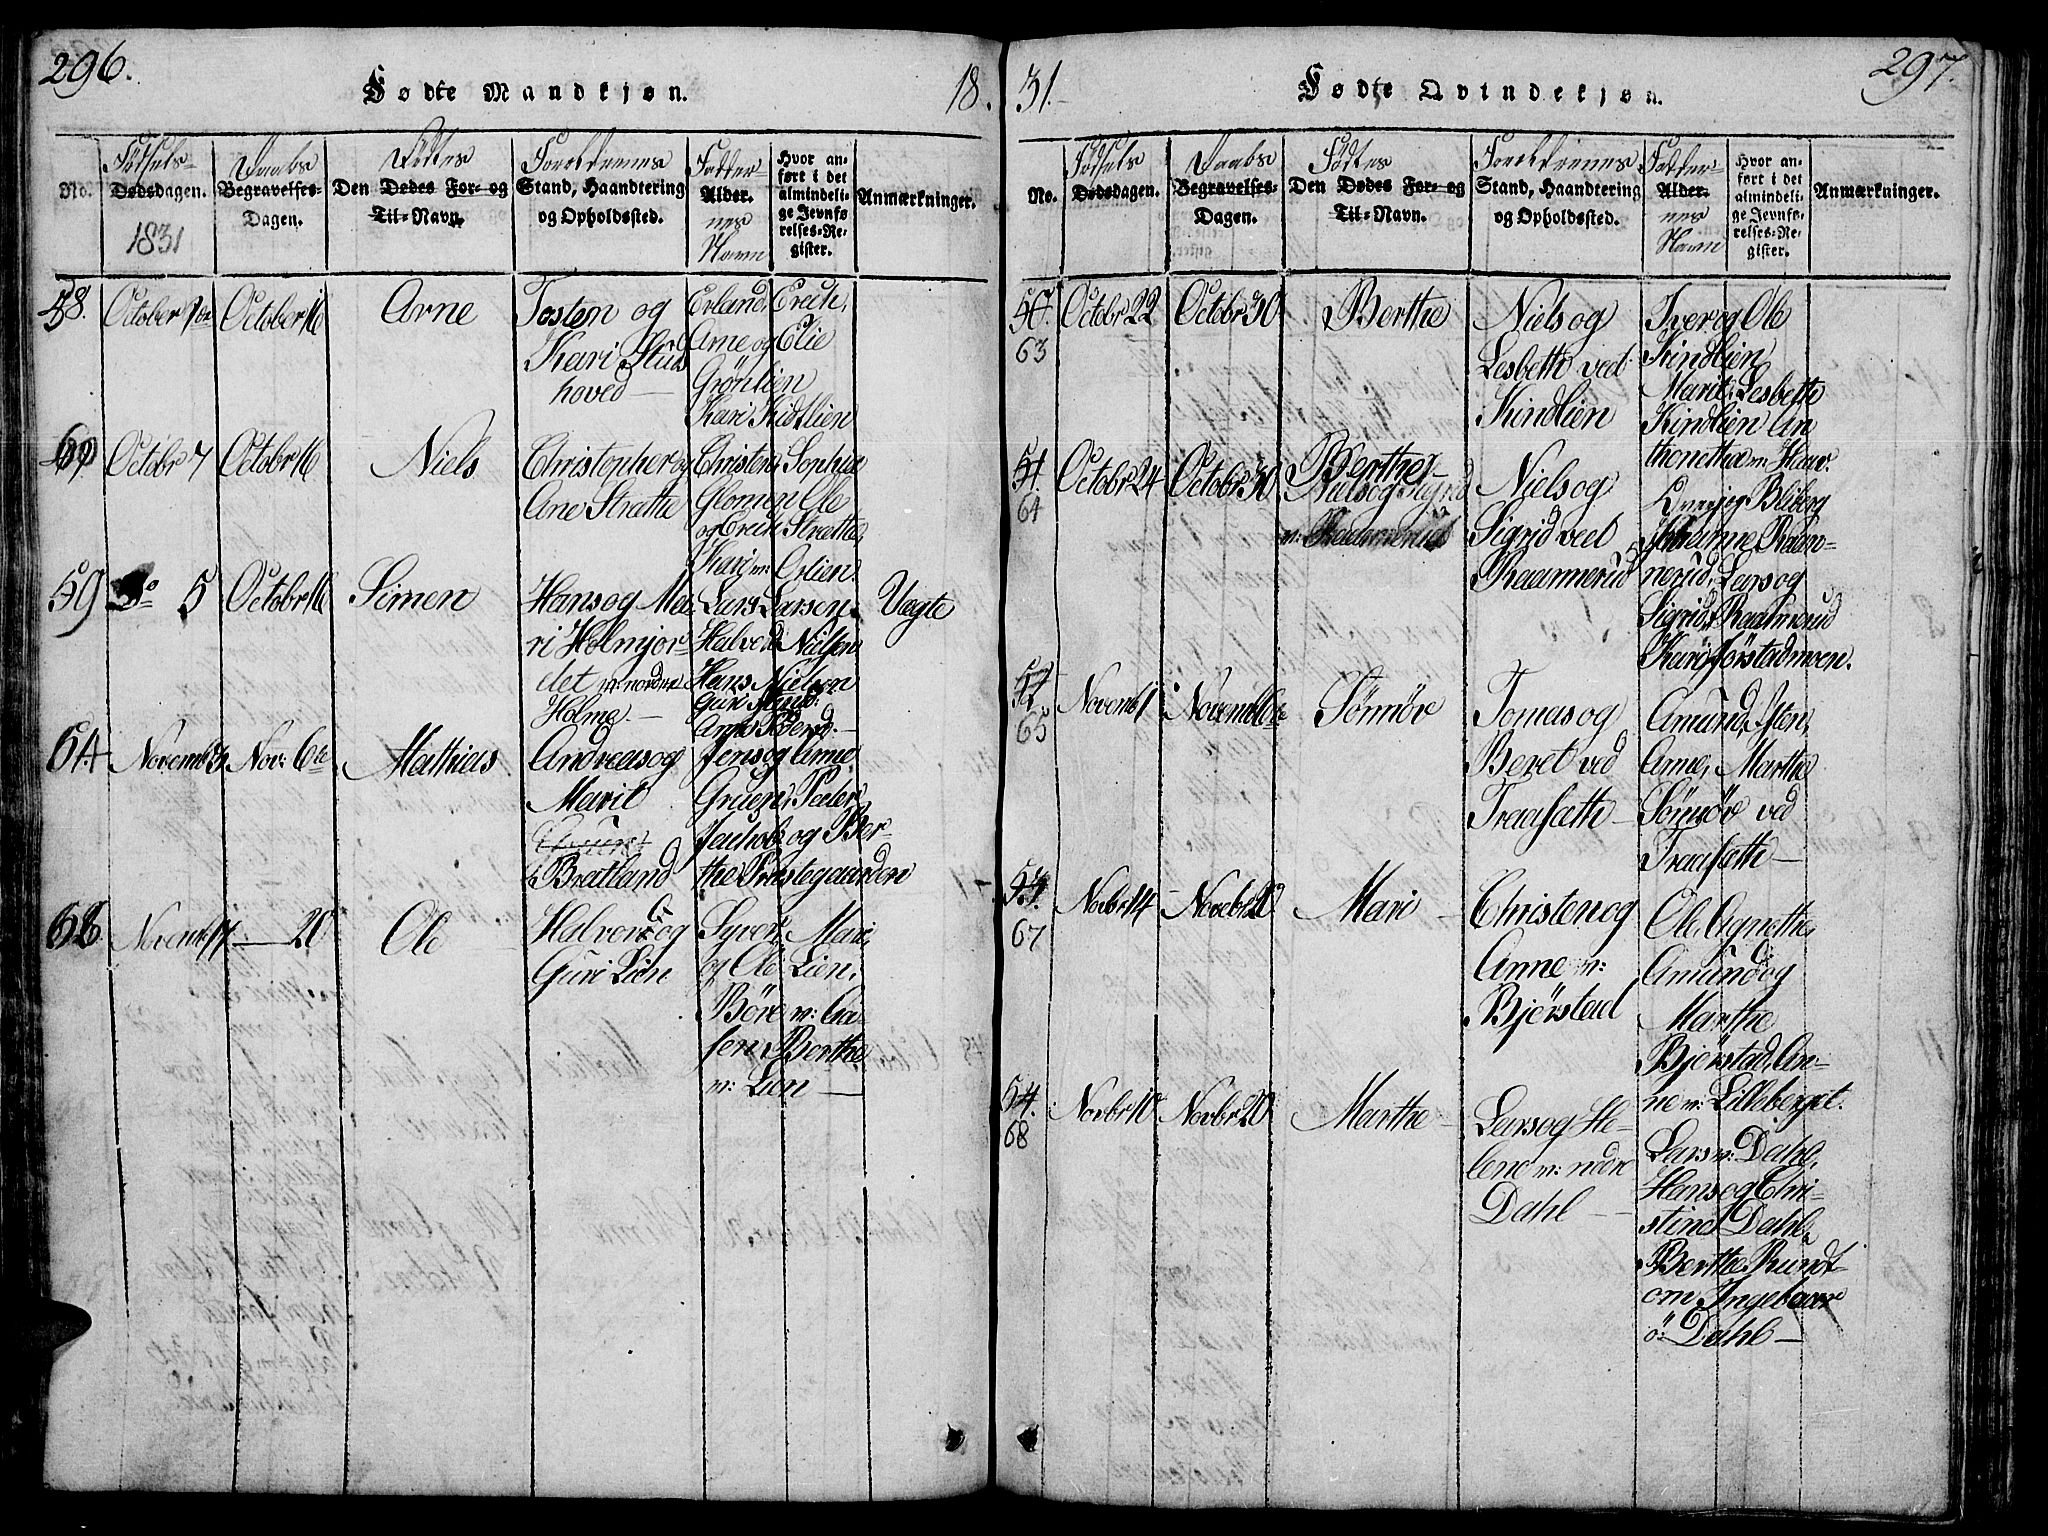 296.
Fødte Mandkjøn.
18.
No.
Fødsels-
Dødsdagen.
1831
Daabs
Begravelses-
Dagen.
Fødtes
Den Dødes For- og
Til-Navn.
Forældrenes
Stand, Haandtering
og Opholdssted.
Fadder-
Alder.
nes
Navne
Hvor an-
ført i det
almindeli-
ge Jevnfø-
relses-Re-
gister.
Anmærkninger.
58.
October
October 16
Arne
Tosten og
Kari
hoved
Erland, Erich,
Arne og Elie
Grönlien
Kari Kidtlien
Octobr 7
Octobr 16
Niels
Christopher og
Ane Stratte
Christen, Sophia
Glomen Ole
og Erich Strætte,
Kari m: Orlien.
59
5
Octobr 16
Simen
Hans og Ma-
ri Holmjor-
det m: nordre
Holme.
Lars Larsen,
Halvor Nielsen
Hans Nielsen
Guri
Vægte
64
Novemb 3
Nov: 6te
Mathias
Andreas og
Marit
Bratland
Jens og Anne
Gruen, Peder
Jachob og Ber-
the Præstegaarden
Novemb 11
20
Ole
Halvor og
Guri Lien
Syver, Mari,
og Ole Lien,
Böre m: Aa-
sen, Berthe
m: Lien
31.
Fødte Qvindekjøn.
297.
No.
Fødsels
Dødsdagen.
Daabs
Begravelses-
Dagen.
Fødtes
Den Dødes For- og
Til-Navn.
Forældrenes
Stand, Haandtering
og Opholdssted.
Fadder-
Alder.
nes
Navne
Hvor an-
ført i det
almindeli-
ge Jevnfø-
relses-Re-
gister.
Anmærkninger.
50.
63
Octobr 22
Octobr 30
Berthe
Niels og
Lesbeth ved
Kindlien
Iver og Ole
Kindlien,
Marit, Lesbeth
Kindlien An
thonetha m: Haav.
51.
64
Octobr 24
Octobr 30
Berthe
Niels og Sigrid
m: Raamerud
Niels og
Sigrid ved
Raamnerud
Bliberg
Johanne Raam-
nerud, Lars og
Sigrid Raamnerud
Kari Jörstadmoen.
52
65
Novemb 1
Novemb 6te
Sönnöv
Tomas og
Beret ved
Traasæth
Amund, Isten,
Anne, Marthe
Sönnöv ved
Traasæth
53.
67
Novbr 14
Novebr 20
Mari
Christen og
Anne m:
Bjørstad
Ole, Agnethe,
Amund og
Marthe
Bjørstad, An-
ne m: Lilleberget.
54.
68
Novbr 10
Novbr 20
Marthe
Lars og He-
lene m: ndre
Dahl
Lars m: Dahl,
Hans og Chri-
stine Dahl,
Berthe Rundt
om Ingebaar
ö: Dahl